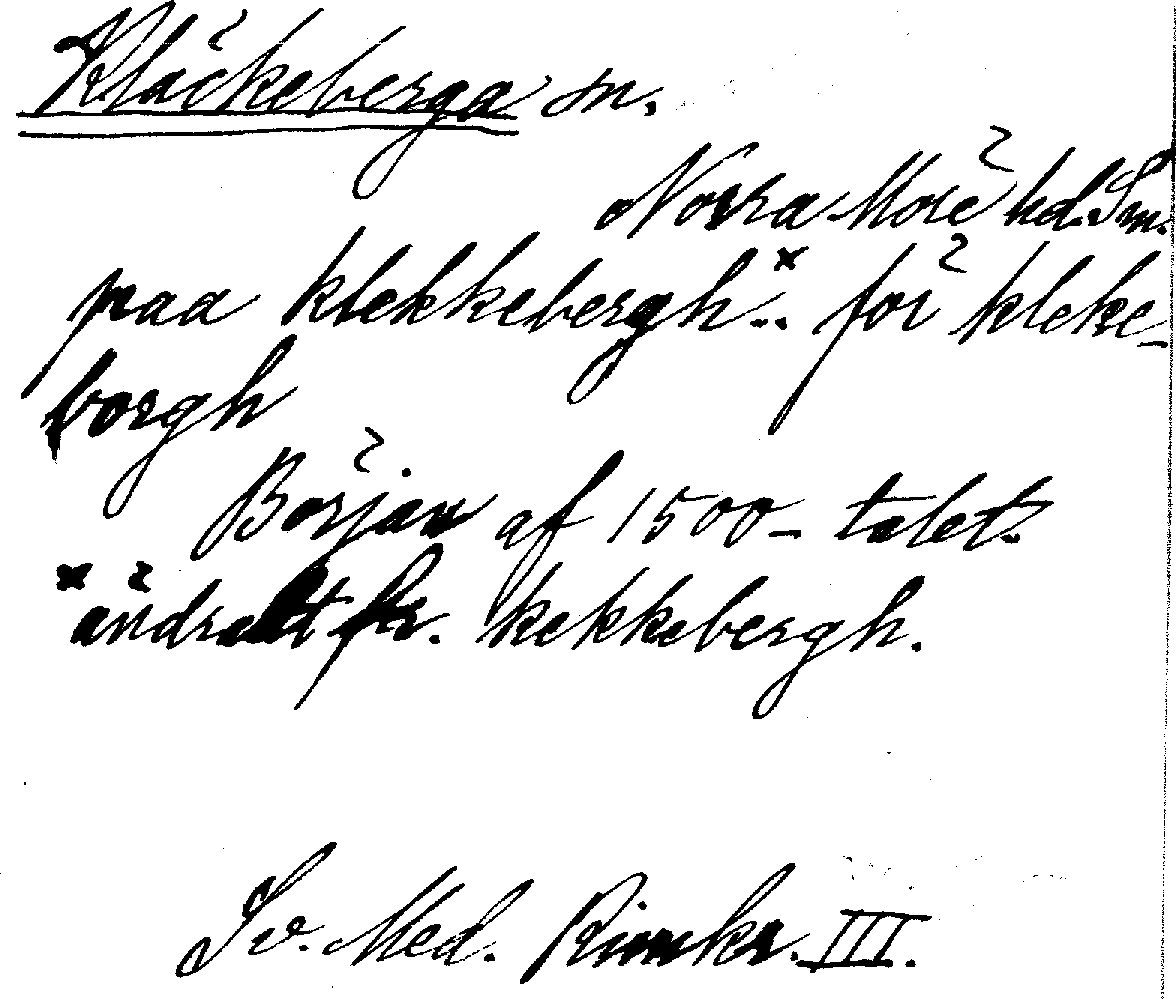 Kläckeberga sn.
Norra Möre hd. Sm.
paa klekkebergh..× för kleke-
borgh
Början af 1500-talet.
×ändradt fr. kekkebergh.
Sv. Med. Rimkr. III.